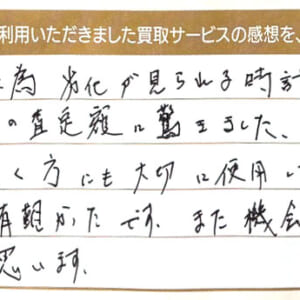 利用いただきました買取サービスの感想を、
為 劣化が見られる時計
の査定額に驚きました、
く方にも大切に使用い
有難かたです。また機会
思います。